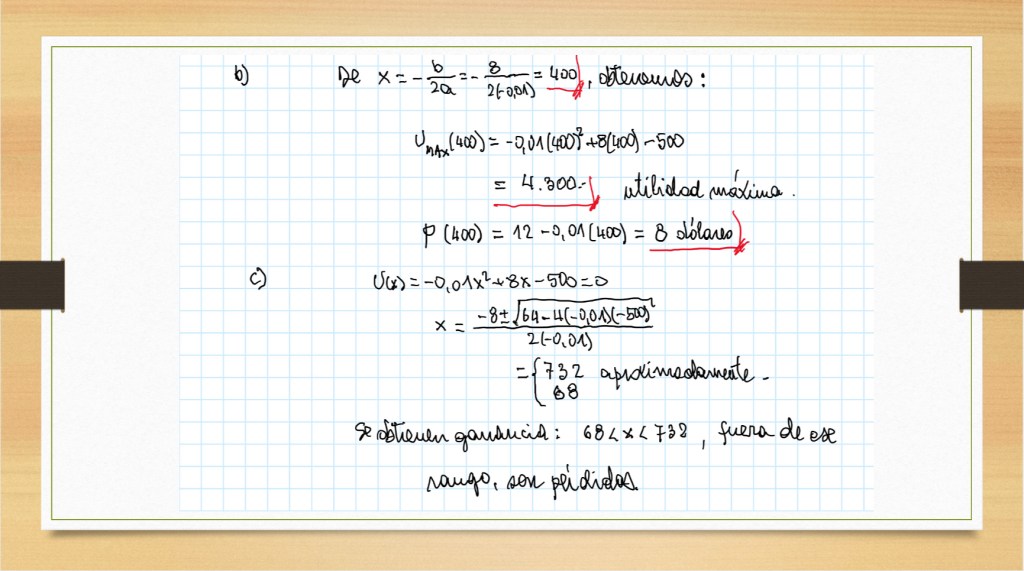 b) De x = -b/2a = -8/2(-0,01) = 400, obtenemos:
U_MAX(400) = -0,01(400)² + 8(400) - 500
= 4.300.- utilidad máxima.
P(400) = 12 - 0,01(400) = 8 dólares
c) U(x) = -0,01x² + 8x - 500 = 0
x = -8 ± √64 - 4(-0,01)(-500) / 2(-0,01)
= { 732 aproximadamente.
68
Se obtienen ganancia: 68 < x < 732, fuera de ese
rango, son pérdidas.